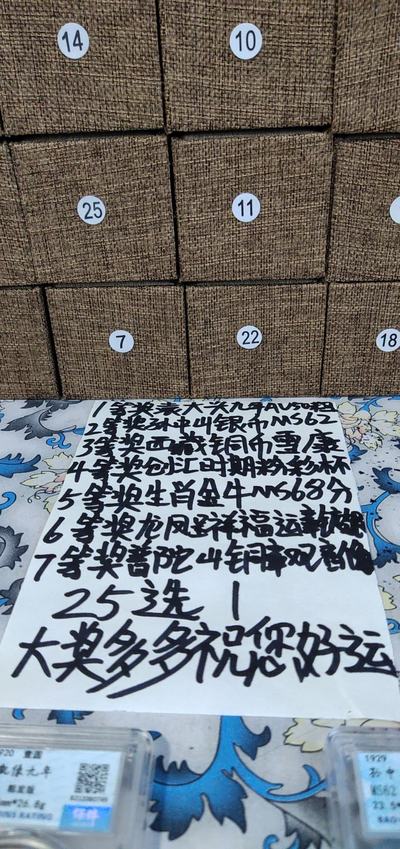 14
10
25
11
7
22
18
1等奖袁大头九年AU50粗
2等奖孙中山银币MS62
3等奖西藏铜币雪康
4等奖 时期粉彩杯
5等奖生肖金牛MS68分
6等奖龙凤呈祥福运
7等奖普陀山铜 观音像
25选1
大奖多多祝您好运
1920
元年
26.8g
RATING
1929
孙中
MS62